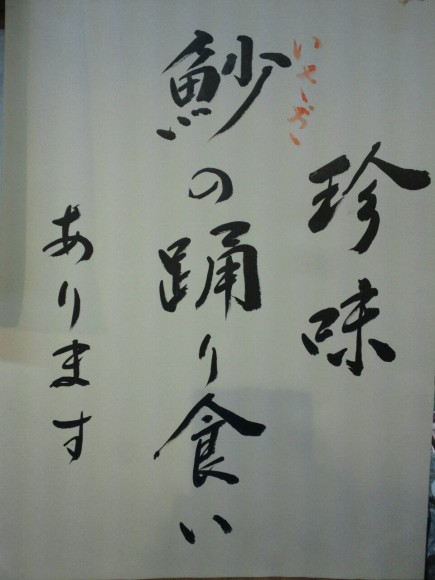 珍味
魦の踊り食い
あります